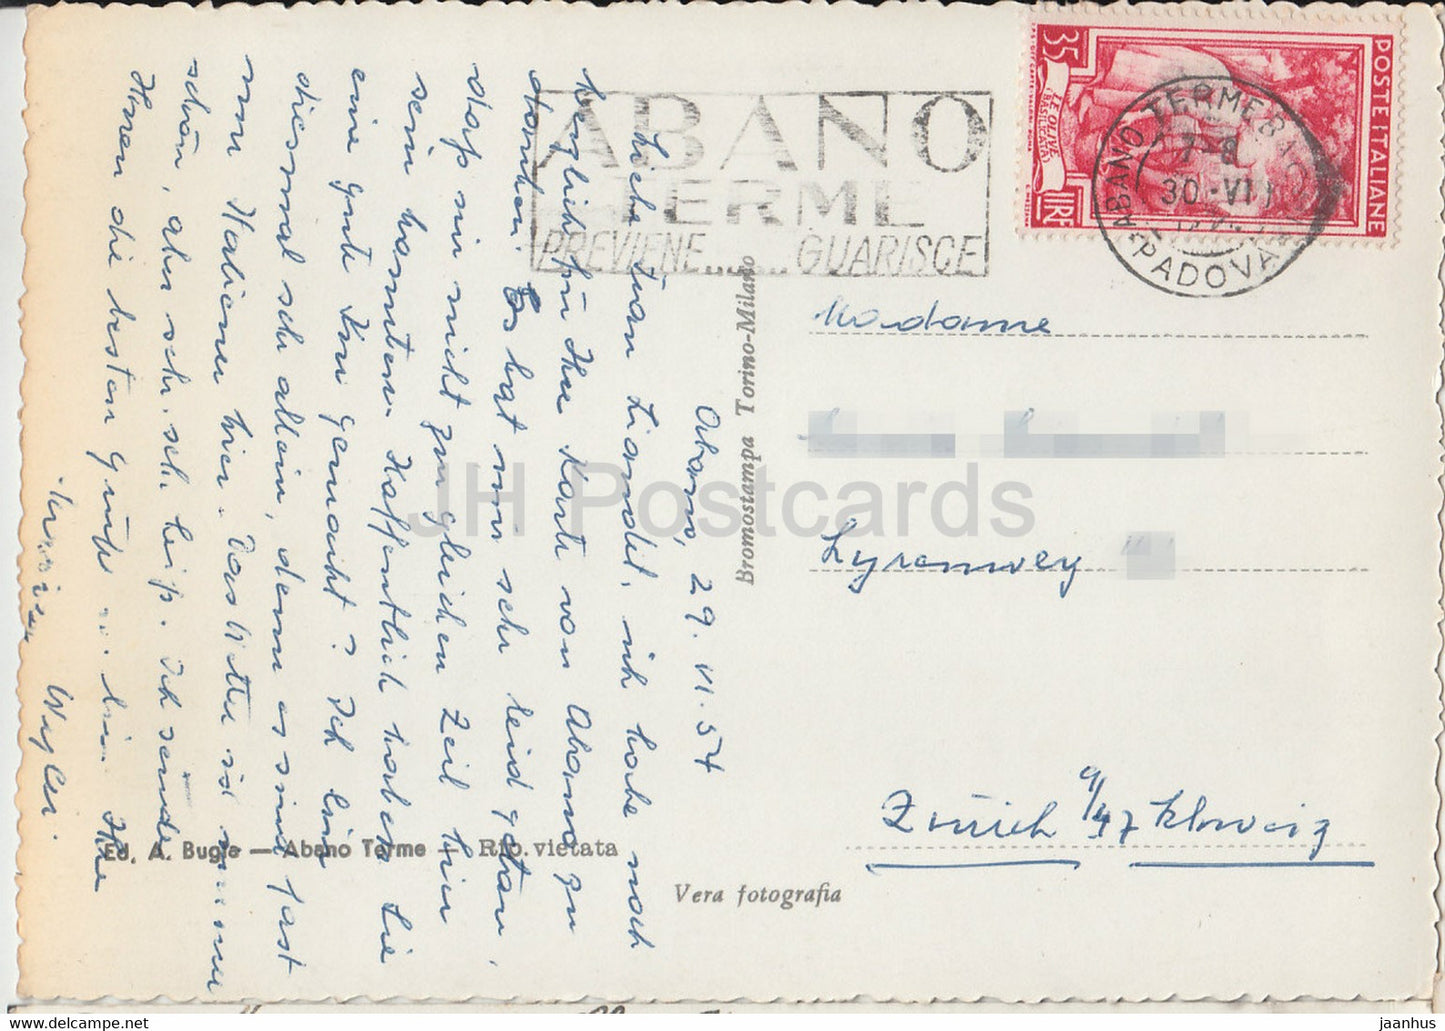 POSTE ITALIANE
35
LIRE
LE OLIVE
(BASILICATA)
ABANO TERME BAGNI
7-8
30·VI
PADOVA
ABANO
TERME
PREVIENE......GUARISCE
Abano, 29. VI. 54
Liebe Frau Liandit, ich habe noch
herzlich für Ihre Karte von Abano zu
danken. Es hat mir sehr leid getan,
dass wir nicht zur gleichen Zeit hier
sein konnten. Hoffentlich haben Sie
eine gute Kur gemacht? Ich bin
diesmal sehr allein, denn es sind fast
nur Italiener hier. Das Wetter ist
schön, aber sehr, sehr heiss. Ich sende
Ihnen die besten Grüsse bin Ihre
Wyler.
Madame
Lyrenweg
Zürich 9/47 Schweiz
Bromostampa Torino-Milano
Ed. A. Bugle — Abano Terme — Rip. vietata
Vera fotografia
JH Postcards
http://www.delcampe.net
jaanhus